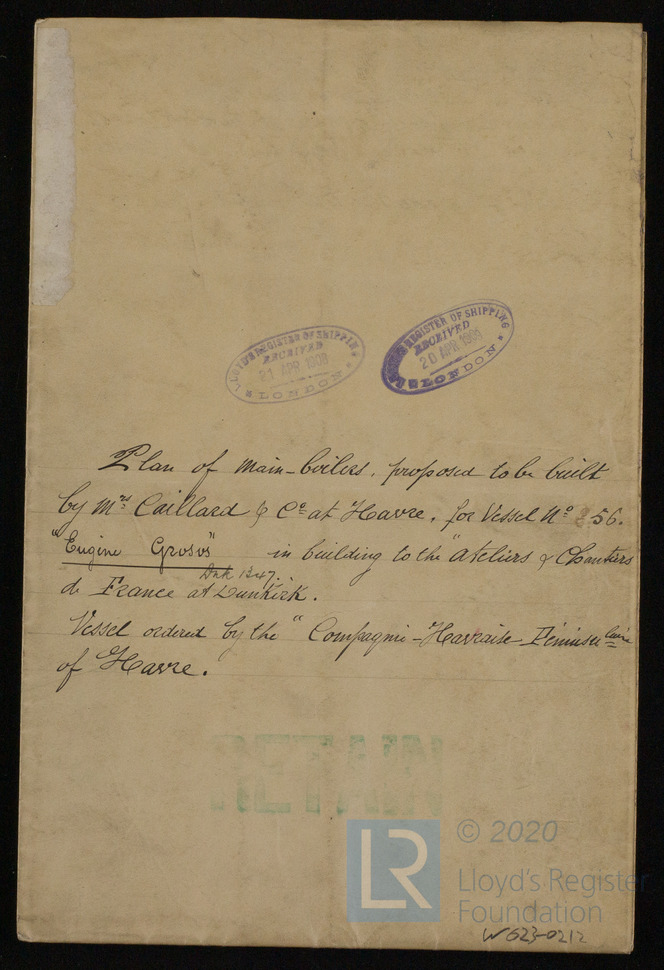 LLOYD'S REGISTER OF SHIPPING
RECEIVED
21 APR 1908
LONDON
LLOYD'S REGISTER OF SHIPPING
RECEIVED
20 APR
LONDON
Plan of main-boilers, proposed to be built
by Mrs Caillard & Co at Havre, for Vessel No 56.
"Eugène Grosos" in building to the "Ateliers & Chantiers
Dnk 1347.
de France at Dunkirk.
Vessel ordered by the "Compagnie-Havraise-Péninsulaire
of Havre.
RETAIN
LR
© 2020
Lloyd's Register
Foundation
W623-0212